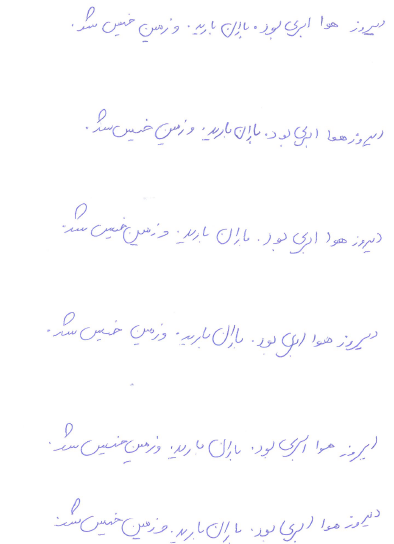 دیروز هوا ابری بود. باران بارید. و زمین خیس شد.
دیروز هوا ابری بود. باران بارید. و زمین خیس شد.
دیروز هوا ابری بود. باران بارید. و زمین خیس شد.
دیروز هوا ابری بود. باران بارید. و زمین خیس شد.
دیروز هوا ابری بود. باران بارید. و زمین خیس شد.
دیروز هوا ابری بود. باران بارید. و زمین خیس شد.